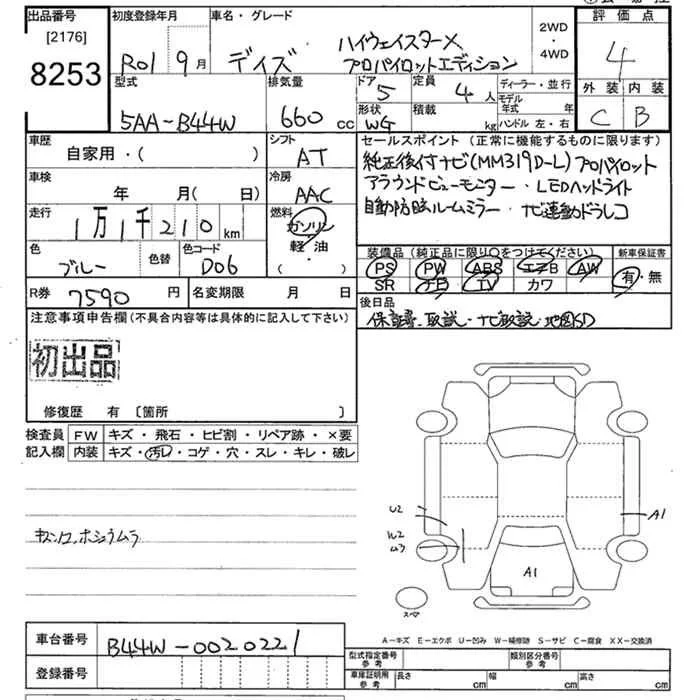 出品番号 初度登録年月 車名・グレード 2WD ・ 4WD 評価点
[2176]
8253 R01 9月 デイズ ハイウェイスターX
プロパイロットエディション 4
型式 排気量 ドア 定員 ディーラー・並行 外装 内装
5AA-B44W 660 cc 5 4人 モデル年式 年 C B
形状 積載
WG kg ハンドル 左・右
車歴 シフト セールスポイント(正常に機能するものに限ります)
自家用・( ) AT 純正後付ナビ(MM319D-L)プロパイロット
車検 冷房 アラウンドビューモニター・LEDヘッドライト
年 月( ) AAC 自動防眩ルームミラー・ナビ連動ドラレコ
走行 燃料
1万1千210km ガソリン
軽・油
( )
色 色替 色コード 装備品(純正品に限り○をつけてください) 新車保証書
ブルー D06 PS PW ABS エアB AW 有・無
SR TV カワ
R券 7590円 名変期限 月 日 後日品
保証書、取説・ナビ取説・地図SD
注意事項申告欄(不具合内容等は具体的に記入して下さい)
初出品
修復歴 有 〔箇所 〕
検査員 FW キズ・飛石・ヒビ割・リペア跡・×要
記入欄 内装 キズ・汚レ・コゲ・穴・スレ・キレ・破レ
U2
A1
W2
A1
スペア
A-キズ E-エクボ U-凹み W-補修跡 S-サビ C-腐食 XX-交換済
車台番号 B44W-0020221
型式指定番号 参考 類別区分番号 参考
登録番号 車庫証明用 参考 長さ cm 幅 cm 高さ cm